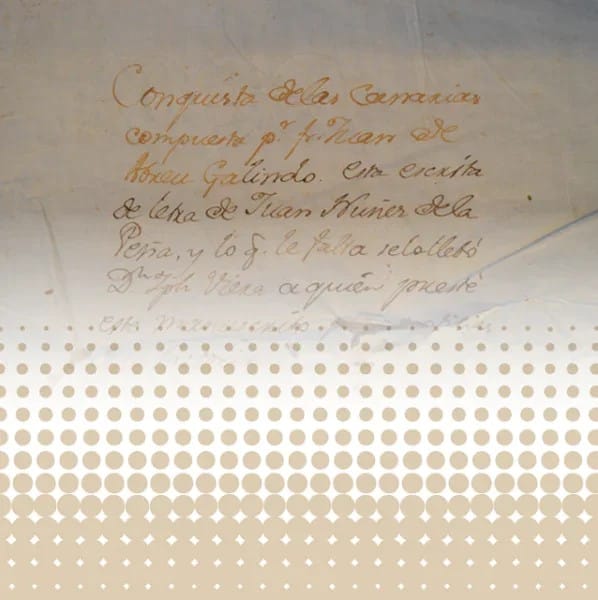 Conquista de las Canarias
compuesta pr. fr. Juan de
Abreu Galindo. esta escrita
de letra de Juan Nuñez dela
Peña, y lo q. le falta se lo llebó
Dn. Jph Viera a quien presté
esta manuscrito